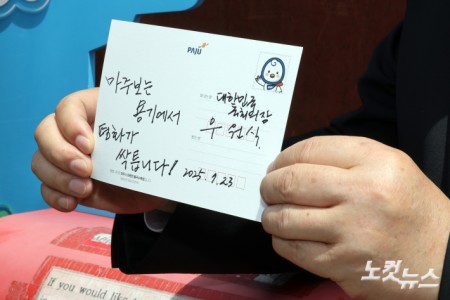 PAJU
마주보는
용기에서
평화가
싹틉니다!
대한민국
국회의장
우원식
2025. 7. 23
If you would like
노컷
뉴스